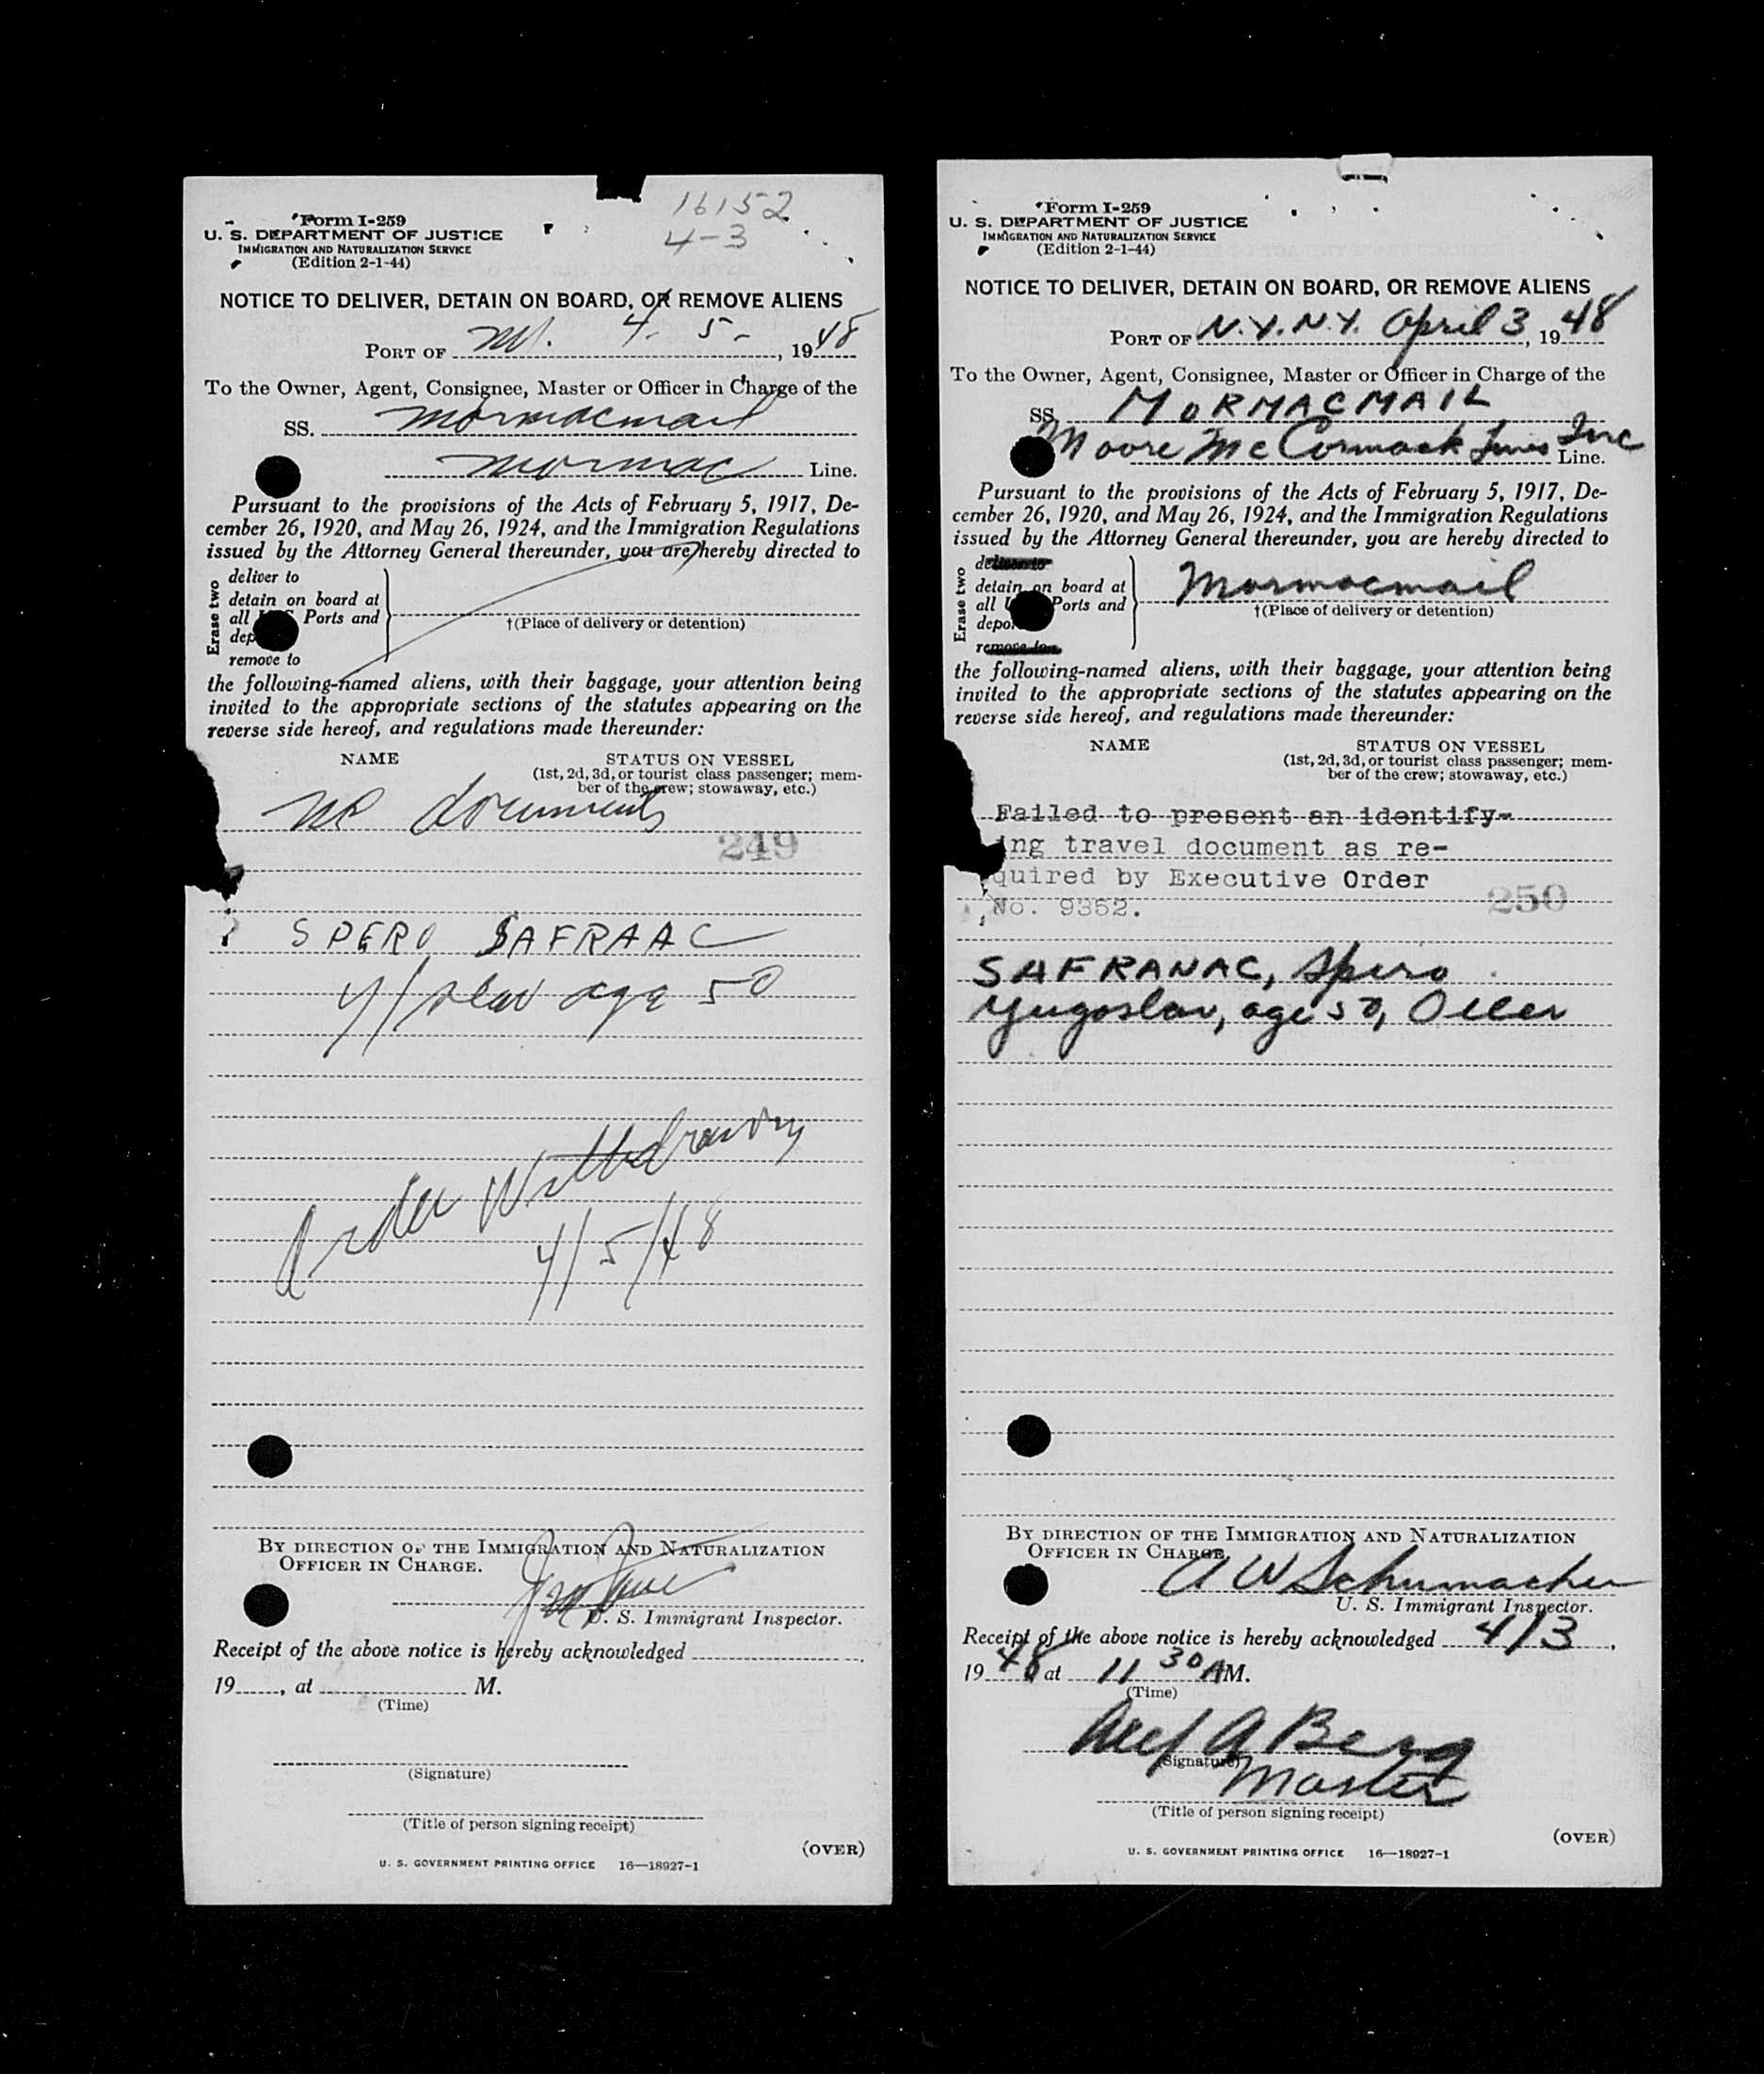 16152
4-3
Form I-259
U. S. DEPARTMENT OF JUSTICE
IMMIGRATION AND NATURALIZATION SERVICE
(Edition 2-1-44)
NOTICE TO DELIVER, DETAIN ON BOARD, OR REMOVE ALIENS
PORT OF 4 - 5 - , 1948
To the Owner, Agent, Consignee, Master or Officer in Charge of the
SS. Mormacmail
Mormac Line.
Pursuant to the provisions of the Acts of February 5, 1917, De-
cember 26, 1920, and May 26, 1924, and the Immigration Regulations
issued by the Attorney General thereunder, you are hereby directed to
Erase two
deliver to
detain on board at
all Ports and
dep
remove to
†(Place of delivery or detention)
the following-named aliens, with their baggage, your attention being
invited to the appropriate sections of the statutes appearing on the
reverse side hereof, and regulations made thereunder:
NAME STATUS ON VESSEL
(1st, 2d, 3d, or tourist class passenger; mem-
ber of the crew; stowaway, etc.)
no documents
249
SPERO SAFRAAC
Y/slav age 50
Order Withdrawn
4/5/48
BY DIRECTION OF THE IMMIGRATION AND NATURALIZATION
OFFICER IN CHARGE.
U. S. Immigrant Inspector.
Receipt of the above notice is hereby acknowledged
19, at M.
(Time)
(Signature)
(Title of person signing receipt)
(OVER)
U. S. GOVERNMENT PRINTING OFFICE 16—18927-1
Form I-259
U. S. DEPARTMENT OF JUSTICE
IMMIGRATION AND NATURALIZATION SERVICE
(Edition 2-1-44)
NOTICE TO DELIVER, DETAIN ON BOARD, OR REMOVE ALIENS
PORT OF N.Y.N.Y. April 3, 1948
To the Owner, Agent, Consignee, Master or Officer in Charge of the
SS. MORMACMAIL
Moore McCormack Lines Inc Line.
Pursuant to the provisions of the Acts of February 5, 1917, De-
cember 26, 1920, and May 26, 1924, and the Immigration Regulations
issued by the Attorney General thereunder, you are hereby directed to
Erase two
deliver to
detain on board at
all U Ports and
depor
remove to
Mormacmail
†(Place of delivery or detention)
the following-named aliens, with their baggage, your attention being
invited to the appropriate sections of the statutes appearing on the
reverse side hereof, and regulations made thereunder:
NAME STATUS ON VESSEL
(1st, 2d, 3d, or tourist class passenger; mem-
ber of the crew; stowaway, etc.)
Failed to present an identify-
ing travel document as re-
quired by Executive Order
No. 9352.
250
SAFRANAC, Spero
Yugoslav, age 50, Oiler
BY DIRECTION OF THE IMMIGRATION AND NATURALIZATION
OFFICER IN CHARGE.
A W Schumacher
U. S. Immigrant Inspector.
Receipt of the above notice is hereby acknowledged 4/3,
1948 at 11 30 AM.
(Time)
A Berg
(Signature)
Master
(Title of person signing receipt)
(OVER)
U. S. GOVERNMENT PRINTING OFFICE 16—18927-1